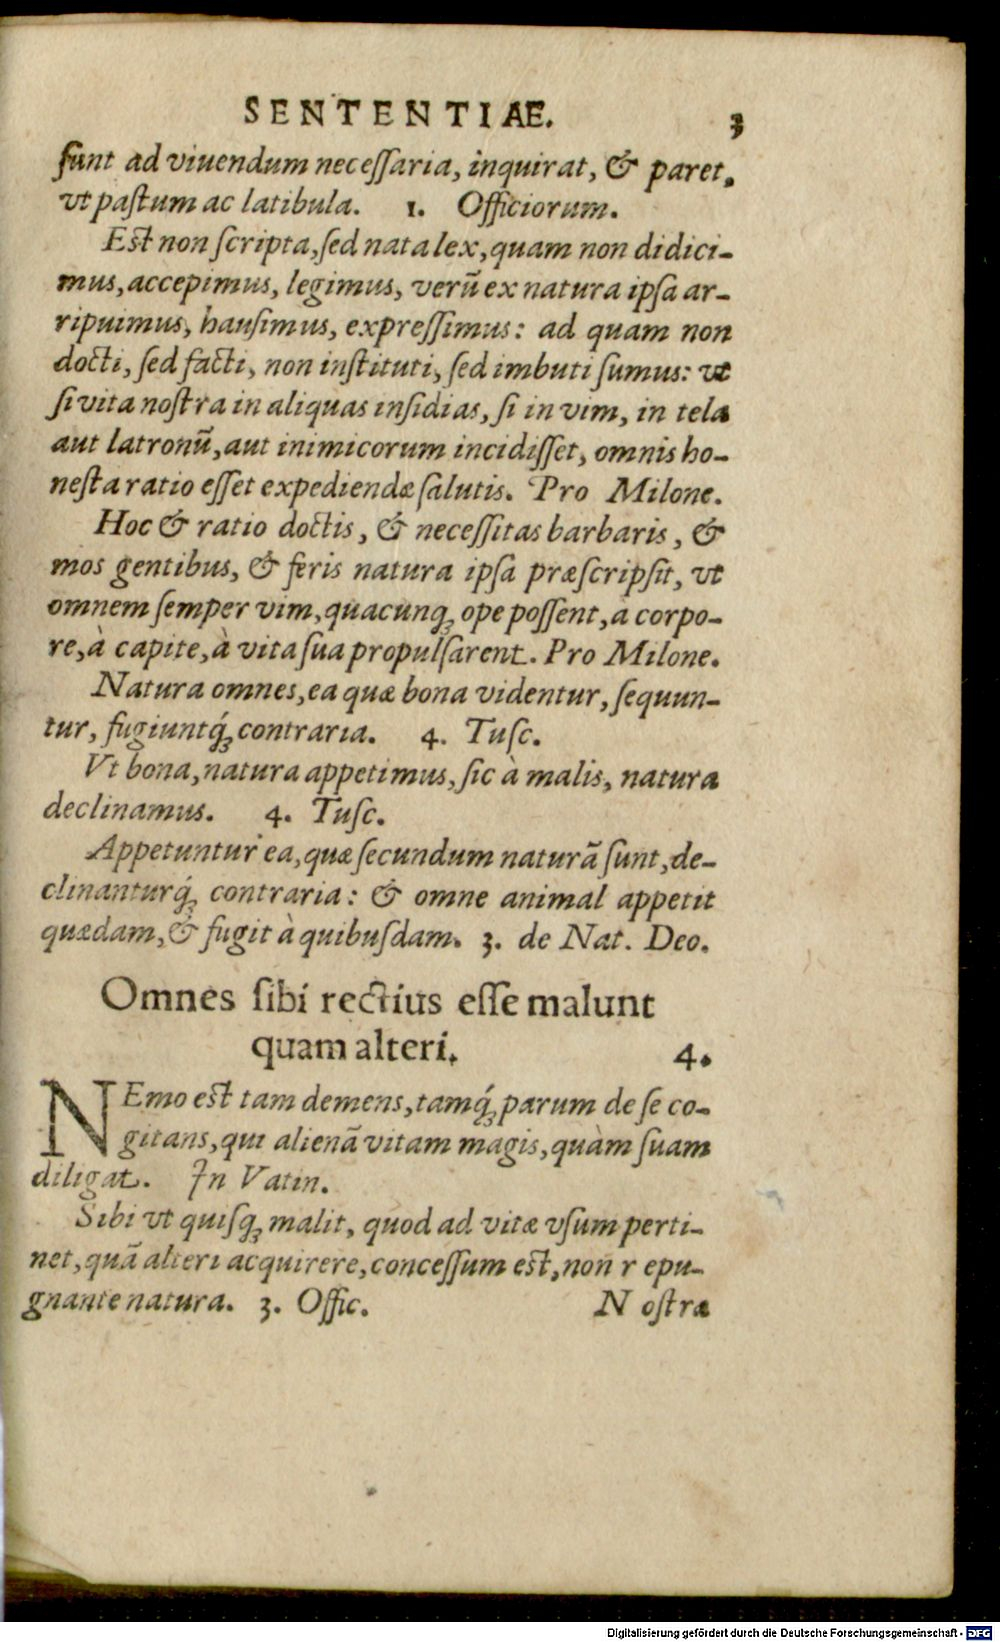 SENTENTIAE. 3
ſunt ad viuendum neceſſaria, inquirat, & paret,
vt paſtum ac latibula. 1. Officiorum.
Eſt non ſcripta, ſed nata lex, quam non didici-
mus, accepimus, legimus, verũ ex natura ipſa ar-
ripuimus, hauſimus, expreſſimus: ad quam non
docti, ſed facti, non inſtituti, ſed imbuti ſumus: vt
ſi vita noſtra in aliquas inſidias, ſi in vim, in tela
aut latronũ, aut inimicorum incidiſſet, omnis ho-
neſta ratio eſſet expediendæ ſalutis. Pro Milone.
Hoc & ratio doctis, & neceſſitas barbaris, &
mos gentibus, & feris natura ipſa præſcripſit, vt
omnem ſemper vim, quacunq; ope poſſent, à corpo-
re, à capite, à vita ſua propulſarent. Pro Milone.
Natura omnes, ea quæ bona videntur, ſequun-
tur, fugiuntq́; contraria. 4. Tuſc.
Vt bona, natura appetimus, ſic à malis, natura
declinamus. 4. Tuſc.
Appetuntur ea, quæ ſecundum naturã ſunt, de-
clinanturq́; contraria: & omne animal appetit
quædam, & fugit à quibuſdam. 3. de Nat. Deo.
Omnes ſibi rectius eſſe malunt
quam alteri. 4.
NEmo eſt tam demens, tamq́; parum de ſe co-
gitans, qui alienã vitam magis, quàm ſuam
diligat. In Vatin.
Sibi vt quiſq; malit, quod ad vitæ vſum perti-
net, quã alteri acquirere, conceſſum eſt, non r epu-
gnante natura. 3. Offic. N oſtra
Digitalisierung gefördert durch die Deutsche Forschungsgemeinschaft - DFG